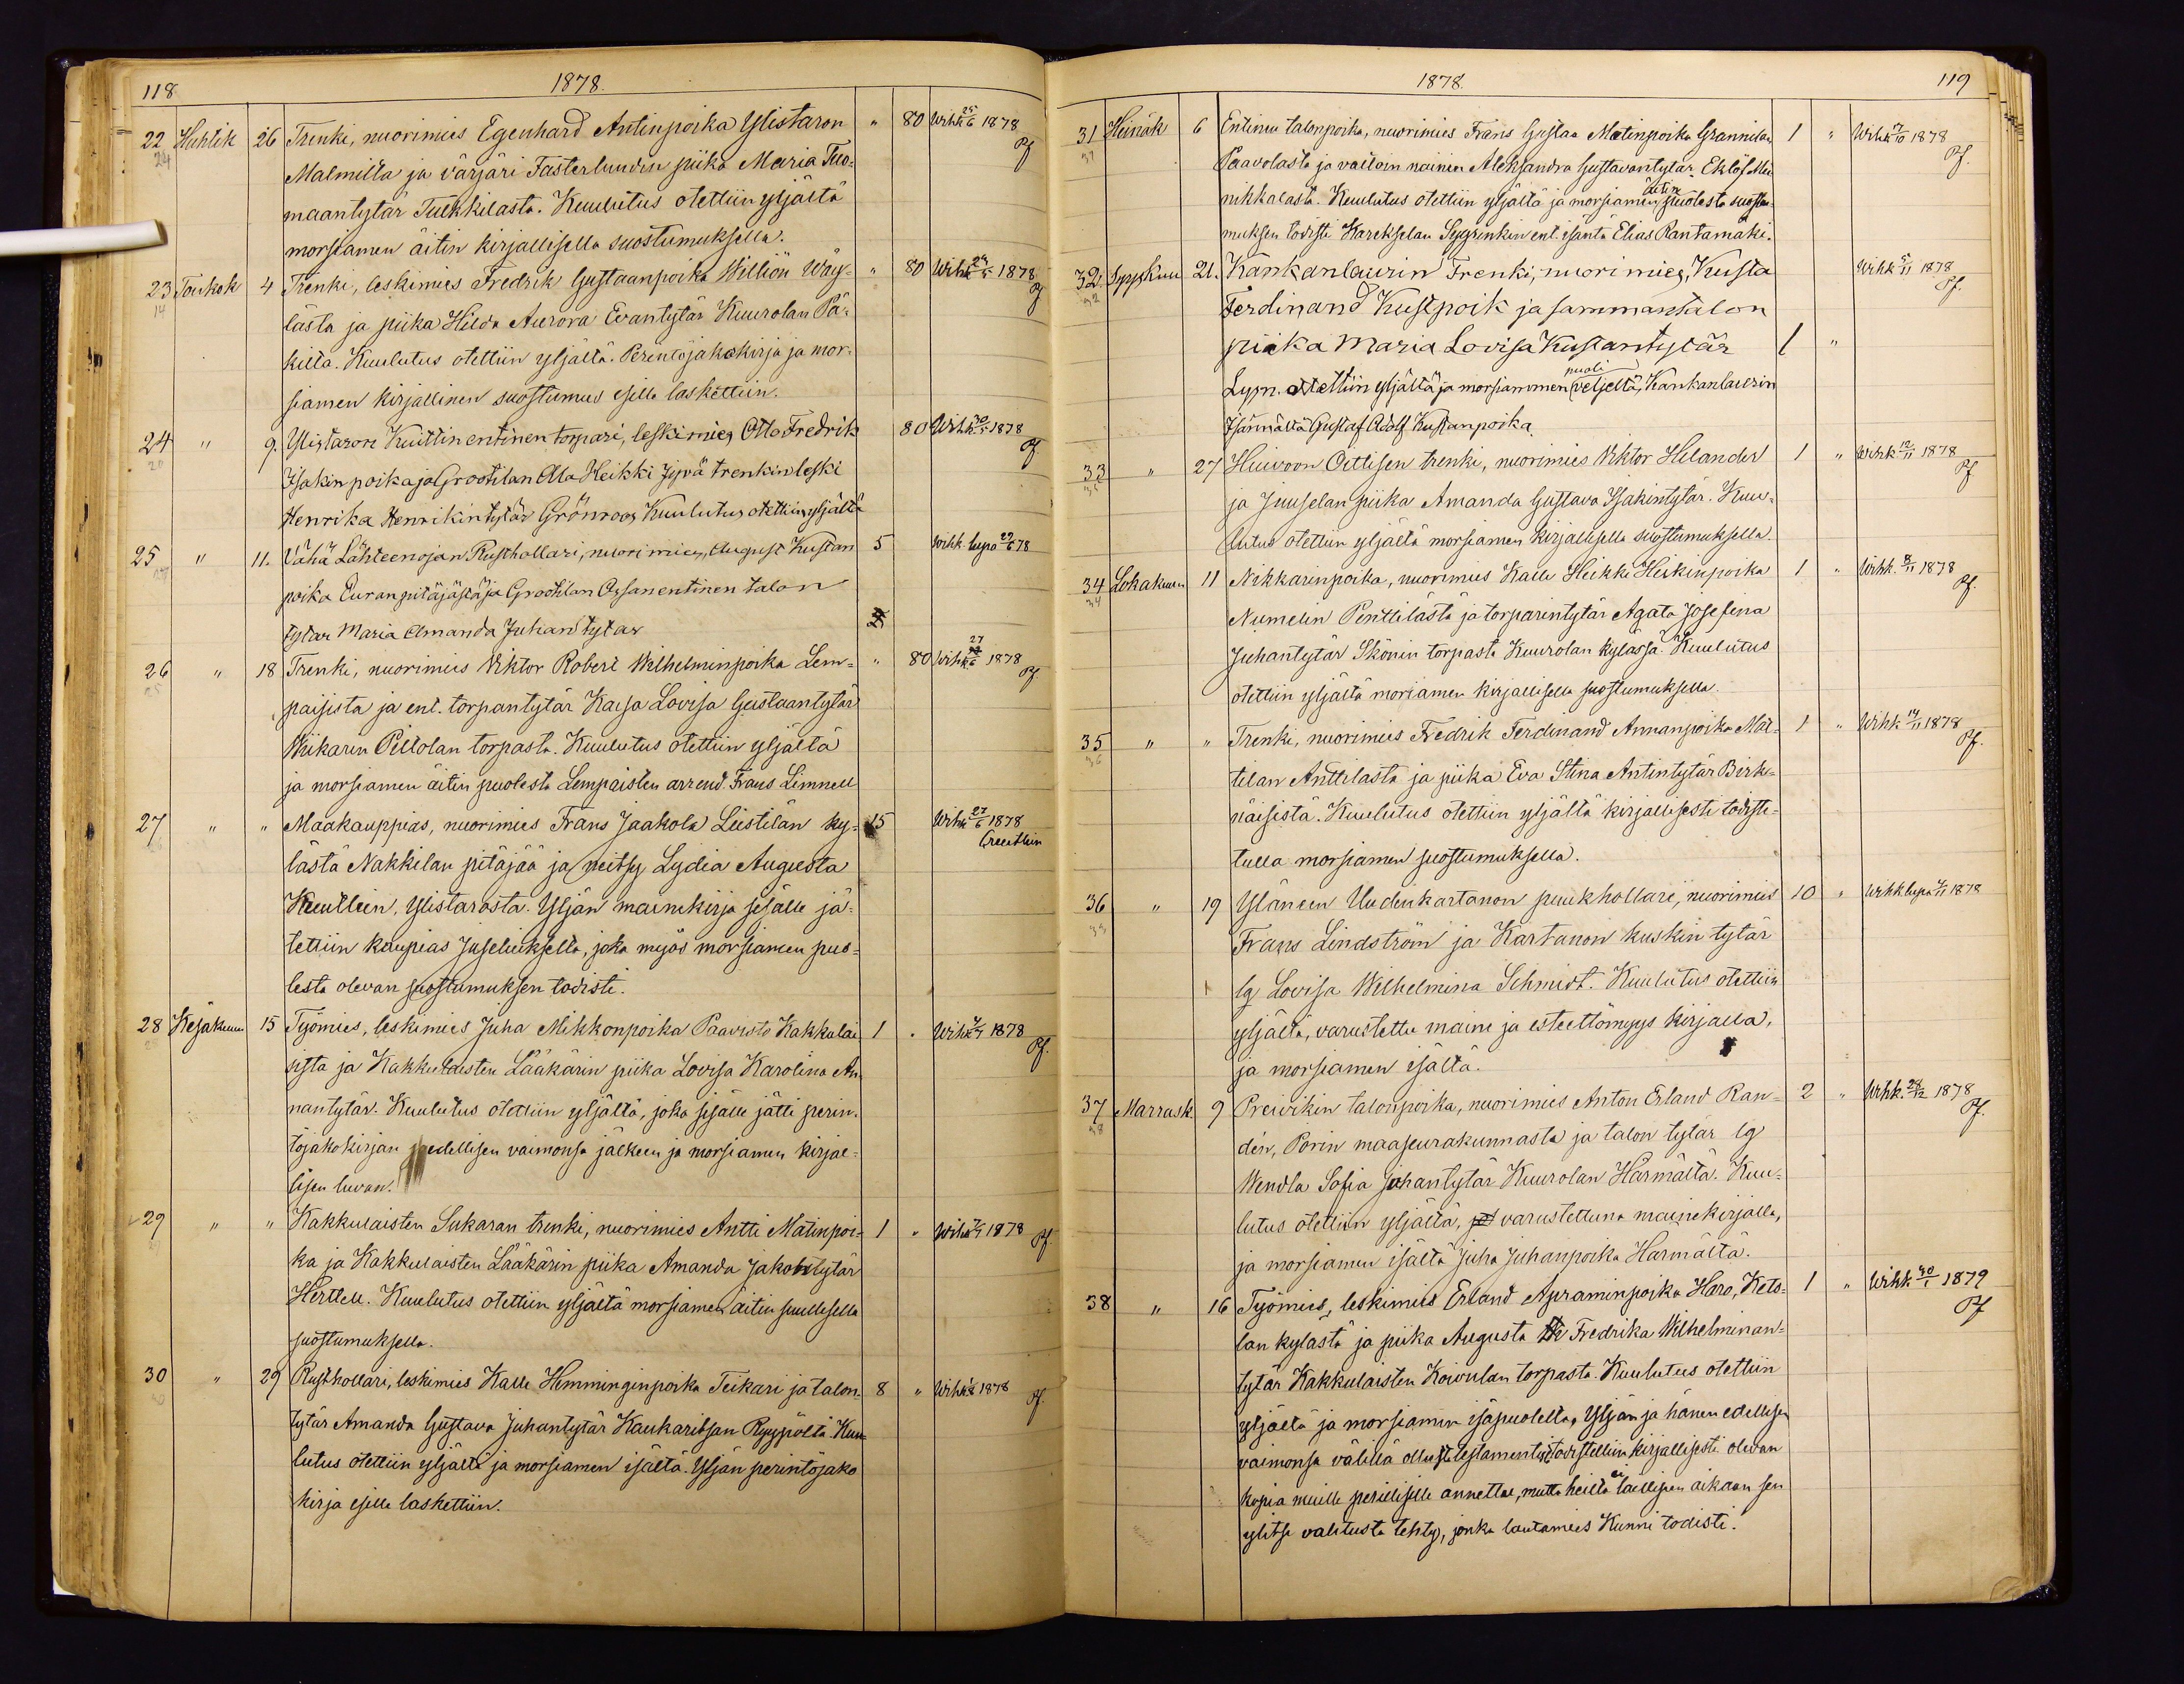 118
1878.
22 Huhtik 26 Trenki, nuorimies Egenhard Antinpoika Ylistaron " 80 Wihk 25/6 1878
24 Malmilta ja värjäri Fasterlundin piika Maria Tuo- Pf
maantytär Tulkkilasta. Kuulutus otettiin yljältä
morsiamen äitin kirjallisella suostumuksella.
23 Toukok 4 Trenki, leskimies Fredrik Gustaanpoika Williön Wäy- " 80 Wihk 24/5 1878
14 lästä ja piika Hilda Aurora Evantytär Kuurolan Pä-
kiltä. Kuulutus otettiin yljältä. Perintöjakokirja ja mor-
siamen kirjallinen suostumus esille laskettiin.
24 " 9. Ylistaron Kuittin entinen torpari, leskimies Otto Fredrik 80 Wihk 30/5 1878
Isakinpoika ja Grootilan Ala Heikki Jyvä trenkin leski Pf.
Henrika Henrikintytär Grönroos Kuulutus otettiin yljältä
25 " 11. Vähä Lähteenojan Rusthollari, nuorimies, August Kustan 5 Wihk. lupa 27/6 78
poika Euran pitäjästä ja Grootilan Ossan entinen talon
tytär Maria Amanda Juhantytär
26 " 18 Trenki, nuorimies Viktor Robert Wilhelminpoika Lem- " 80 Wihk 27/6 1878
paisista ja ent. torpantytär Kaisa Lovisa Gustaantytär Pf.
Wiikarin Piltolan torpasta. Kuulutus otettiin yljältä
ja morsiamen äitin puolesta Lempaisten arrend. Frans Limnell
27 " " Maakauppias, nuorimies Frans Jaakola Leistilän ky- 15 Wihk 27/6 1878
lästä Nakkilan pitäjää ja neitsy Lydia Augusta
Kreutlein, Ylistarosta. Yljän mainekirja sisälle jä-
tettiin kaupias Juseliukselta, joka myös morsiamen puo-
lesta olevan suostumuksen todisti.
28 Kesäkuun 15 Työmies, leskimies Juha Mikkonpoika Paavisto Kakkulai 1 " Wihk 7/7 1878
sista ja Kakkulaisten Lääkärin piika Lovisa Karolina An- Pf.
nantytär. Kuulutus otettiin yljältä, joka sisälle jätti perin-
töjakokirjan edellisen vaimonsa jälkeen ja morsiamen kirjal-
lisen luvan.
29 " " Kakkulaisten Sukaran trenki, nuorimies Antti Matinpoi- 1 " Wihk 7/7 1878 Pf.
ka ja Kakkulaisten Lääkärin piika Amanda Jakobintytär
Hertell. Kuulutus otettiin yljältä morsiamen äitin suullisella
suostumuksella.
30 " 29 Rusthollari, leskimies Kalle Hemminginpoika Teikari ja talon- 8 " Wihk 1878 Pf.
tytär Amanda Gustava Juhantytär Kaukaritsan Ryypöltä. Kuu-
lutus otettiin yljältä ja morsiamen isältä. Yljän perintöjako
kirja esille laskettiin.
1878.
119
31 Heinäk 6 Entinen talonpoika, nuorimies Frans Gustaa Matinpoika Grannilan 1 " Wihk 7/10 1878
31 Paavolasta ja vaitoin nainen Aleksandra Gustavantytär Eklöf Mei Pf.
nikkalasta. Kuulutus otettiin yljältä ja morsiamen äitin puolesta suostu-
muksen todisti Karekselan Sygrinkin ent. isäntä Elias Rantamäki.
32 Syyskuu 21. Kankanlaurin Trenki, nuori mies, Kusta Wihk 5/11 1878
32 Ferdinand Kustpoik ja samman talon Pf.
piika Maria Lovisa Kustantytär 1 "
Lysn. otettiin yljältä ja morsiammen puoli veljeltä, Kankanlaurin
Isännältä Gustaf Adolf Kustanpoika.
33 " 27 Huivoon Oittisen trenki, nuorimies Viktor Helander 1 " Wihk 12/11 1878
ja Juuselan piika Amanda Gustava Isakintytär. Kuu- Pf
lutus otettiin yljältä morsiamen kirjallisella suostumuksella.
34 Lokakuun 11 Nikkarinpoika, nuorimies Kalle Heikki Heikinpoika 1 " Wihk. 8/11 1878
34 Numelin Penttilästä ja torparintytär Agata Josefina Pf.
Juhantytär Skönin torpasta Kuurolan kylässä. Kuulutus
otettiin yljältä morsiamen kirjallisella suostumuksella.
35 " " Trenki, nuorimies Fredrik Ferdinand Annanpoika Mat- 1 " Wihk 14/11 1878
tilan Anttilasta ja piika Eva Stina Antintytär Birk- Pf.
näisistä. Kuulutus otettiin yljältä kirjallisesti todiste-
tulla morsiamen suostumuksella.
36 " 19 Yläneen Uudenkartanon puukhollari, nuorimies 10 " Wihk lupa 7/11 1878
Frans Lindström ja Kartanon kuskin tytär
lg Lovisa Wilhelmina Schmidt. Kuulutus otettiin
yljältä, varustettu maine ja esteettömyys kirjalla,
ja morsiamen isältä.
37 Marrask 9 Preivikin talonpoika, nuorimies Anton Erland Ran- 2 " Wihk. 28/12 1878
38 dén, Porin maaseurakunnasta ja talon tytär lg Pf.
Wendla Sofia Juhantytär Kuurolan Härmältä. Kuu-
lutus otettiin yljältä, varustettuna mainekirjalla,
ja morsiamen isältä Juha Juhanpoika Härmältä.
38 " 16 Työmies, leskimies Erland Apraminpoika Haro, Keto- 1 " Wihk 30/1 1879
lan kylästä ja piika Augusta Fredrika Wilhelminan- Pf
tytär Kakkulaisten Koivulan torpasta. Kuulutus otettiin
yljältä ja morsiamen isäpuolelta, Yljän ja hänen edellisen
vaimonsa välillä ollusta testamentista todistettiin kirjallisesti olevan
kopia muille perillisille annettu, mutta heiltä ei laillisen aikaan sen
ylitse valitusta tehty, jonka lautamies Kunni todisti.